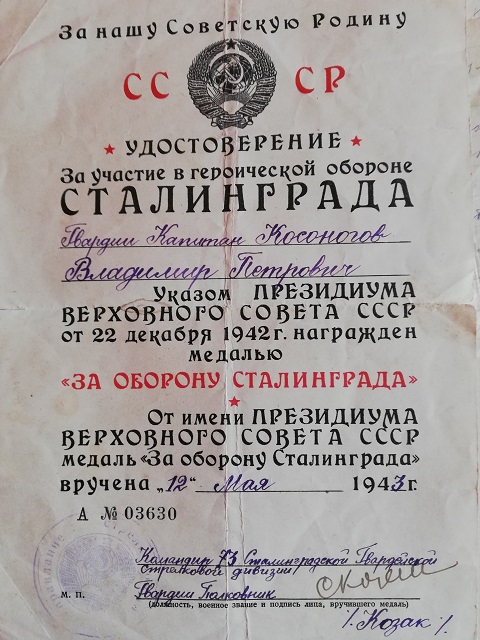 За нашу Советскую Родину
СС СР
УДОСТОВЕРЕНИЕ
За участие в героической обороне
СТАЛИНГРАДА
Гвардии Капитан Косоногов
Владимир Петрович
Указом ПРЕЗИДИУМА
ВЕРХОВНОГО СОВЕТА СССР
от 22 декабря 1942 г. награжден
медалью
«ЗА ОБОРОНУ СТАЛИНГРАДА»
От имени ПРЕЗИДИУМА
ВЕРХОВНОГО СОВЕТА СССР
медаль «За оборону Сталинграда»
вручена „12“ Мая 1943 г.
А № 03630
Командир 73 Сталинградской Гвардейской
стрелковой дивизии
М. П. Гвардии Полковник
(должность, военное звание и подпись лица, вручившего медаль)
/. Козак /.